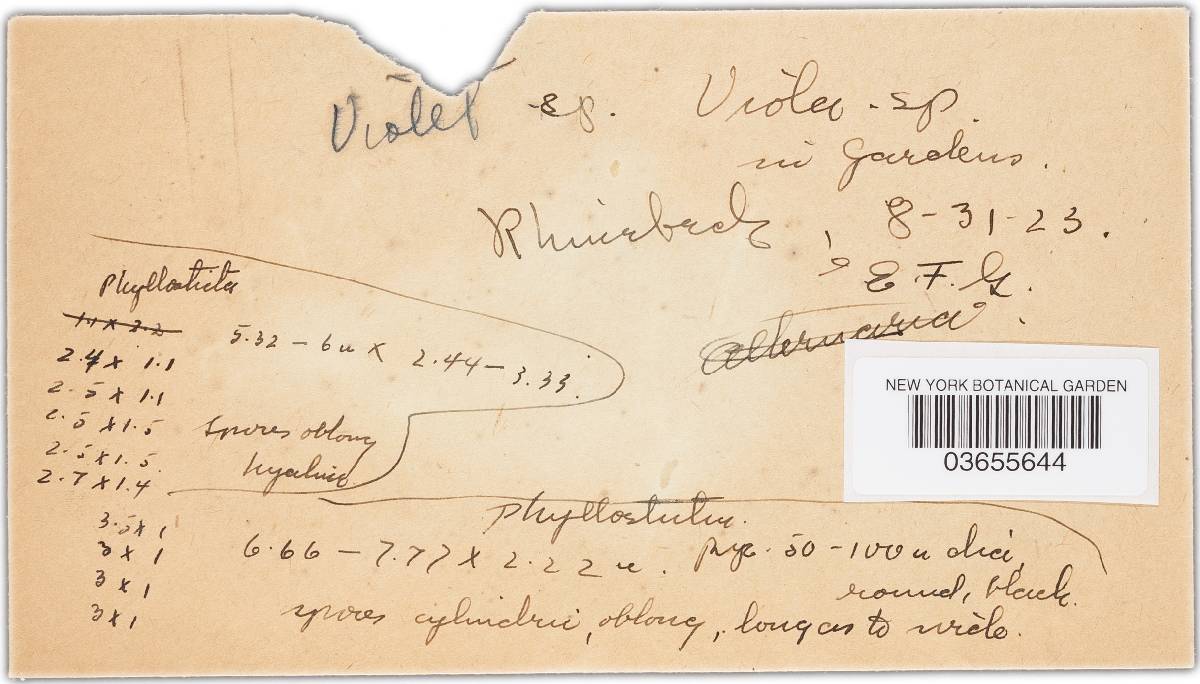 Violet sp. Viola sp.
in gardens.
Rhinebeck, 8-31-23.
E.F.G.
Alternaria
Phyllosticta
1.1 x 2.2
5.32 – 6 u x 2.44 – 3.33.
2.4 x 1.1
2.5 x 1.1
2.5 x 1.5
2.5 x 1.5.
2.7 x 1.4
spores oblong
hyaline.
NEW YORK BOTANICAL GARDEN
03655644
Phyllosticta.
3.5 x 1
3 x 1
3 x 1
3 x 1
6.66 – 7.77 x 2.22 u. pyc. 50-100 u dia,
round, black.
spores cylindric, oblong, long as to wide.